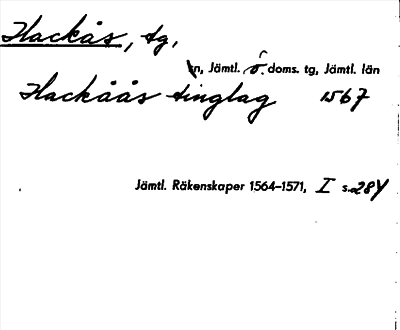 Hackås, tg,
sn, Jämtl. ö. doms. tg, Jämtl. län
Hackåås tinglag 1567
Jämtl. Räkenskaper 1564-1571, I s. 284